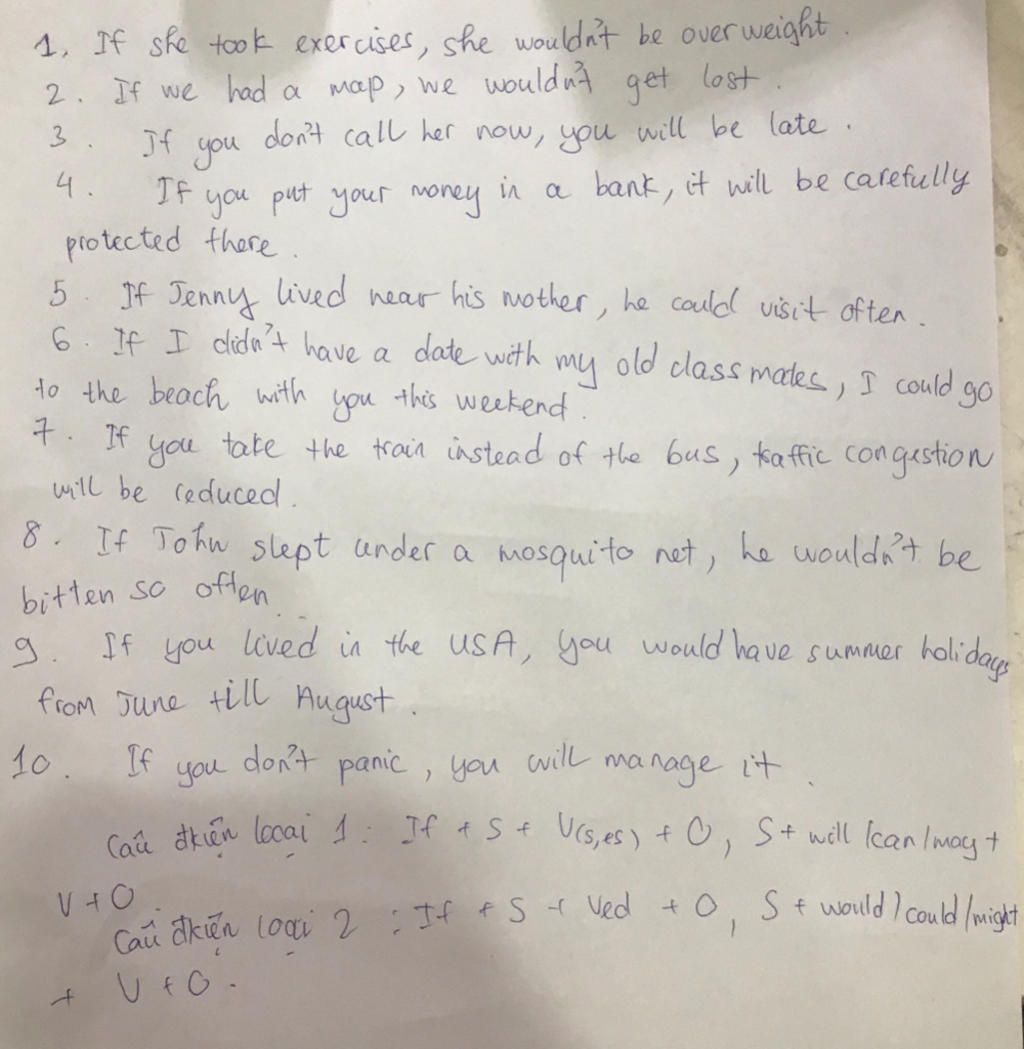 1, If she took exercises, she wouldn't be overweight.
2. If we had a map, we wouldn't get lost.
3. If you don't call her now, you will be late.
4. If you put your money in a bank, it will be carefully
protected there.
5. If Jenny lived near his mother, he could visit often.
6. If I didn't have a date with my old classmates, I could go
to the beach with you this weekend.
7. If you take the train instead of the bus, traffic congestion
will be reduced.
8. If John slept under a mosquito net, he wouldn't be
bitten so often.
9. If you lived in the USA, you would have summer holidays
from June till August.
10. If you don't panic, you will manage it.
Câu đkiện loại 1: If + S + V(s,es) + O, S + will/can/may +
V + O.
Câu đkiện loại 2: If + S + Ved + O, S + would/could/might
+ V + O.